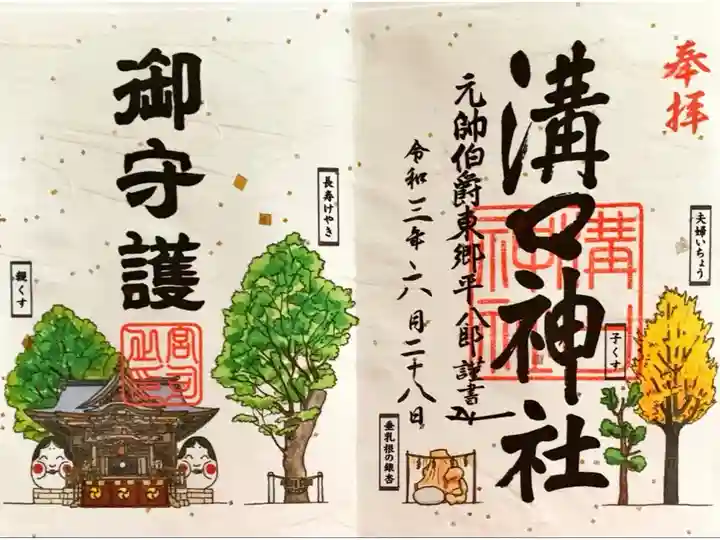 奉拝
夫婦いちょう
溝口神社
溝口神社
子くす
元帥伯爵東郷平八郎謹書
令和三年六月二十八日
垂乳根の銀杏
長寿けやき
御守護
宮司之印
親くす